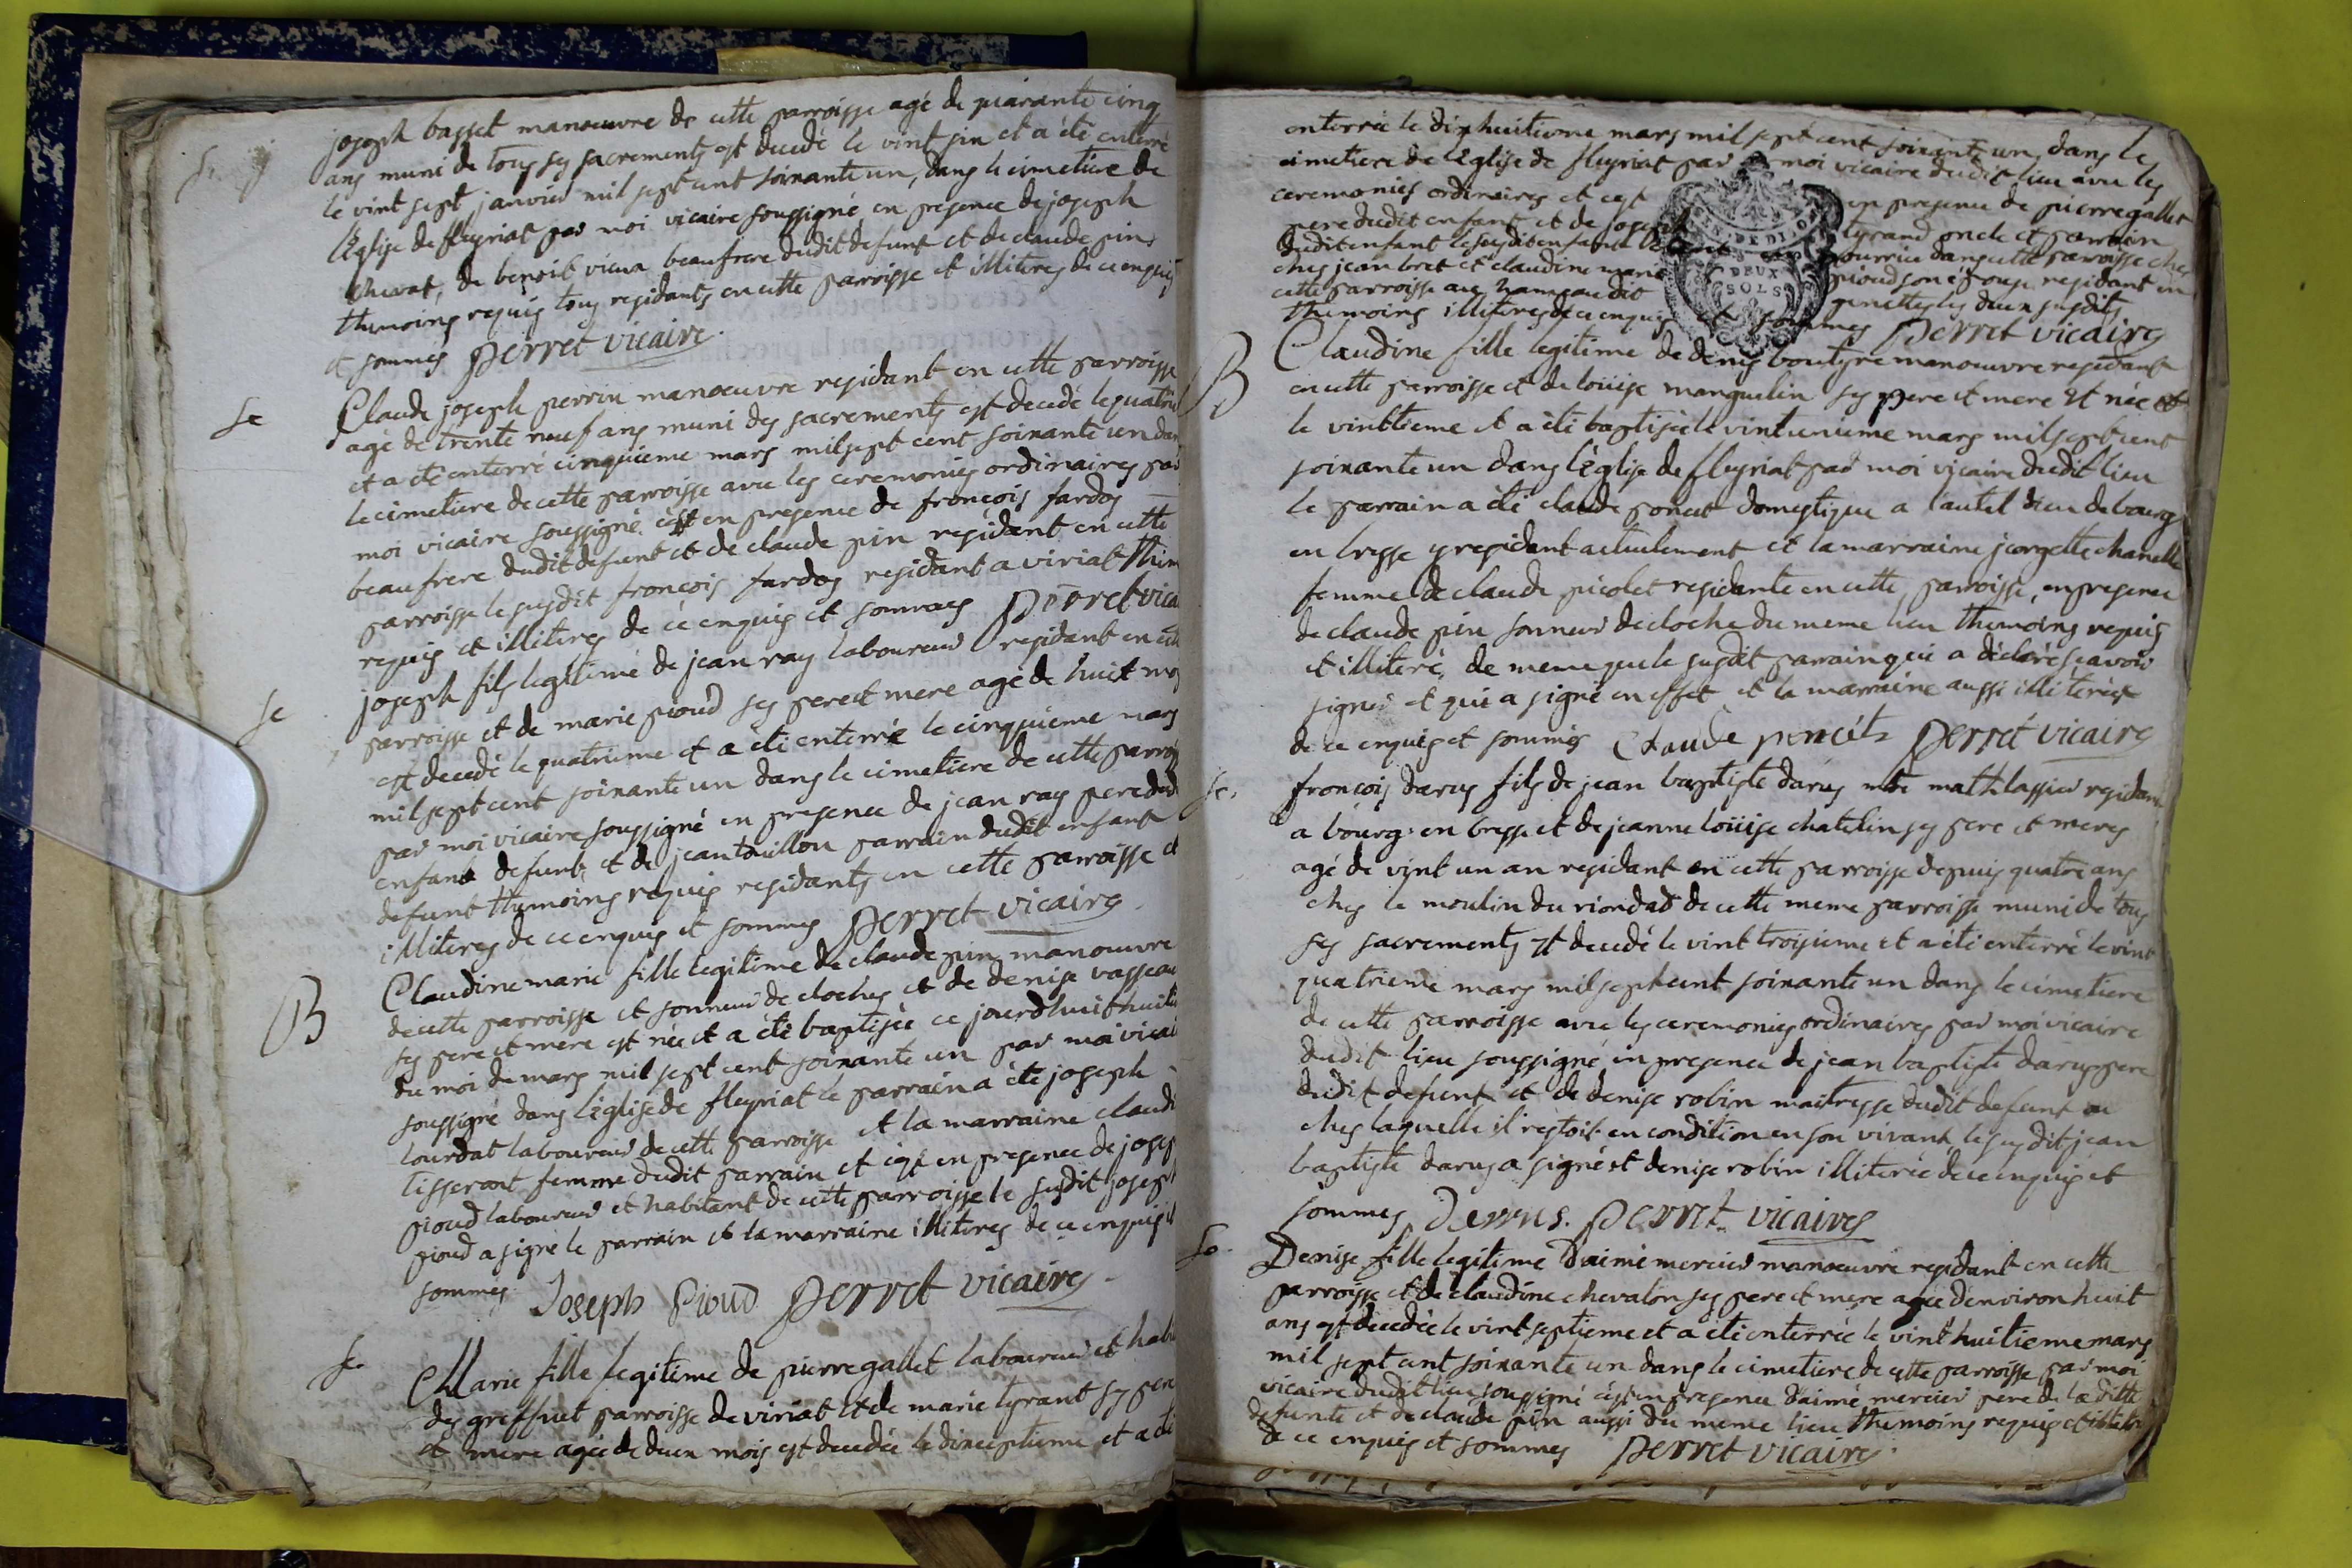 joseph basset manoeuvre de cette parroisse agé de quarante cinq
ans muni de tous ses sacrements est decedé le vint sin et a été enterré
le vint sept janvier mil sept cent soixante un, dans le cimetiere de
l'Eglise de fleyriat par moi vicaire soussigné en presence de joseph
chevat, de benoit vieux beaufrere dudit defunt et de claude pin
themoins requis tous residants en cette parroisse et illiteres de ce enquis
et sommes perret vicaire
Se
Claude joseph perrin manoeuvre residant en cette parroisse
agé de trente neuf ans muni des sacrements est decedé le quatrie
et a été enterré cinquieme mars mil sept cent soixante un dan
le cimetiere de cette parroisse avec les ceremonies ordinaires par
moi vicaire soussigné cest en presence de françois fardos
beaufrere dudit defunt et de claude pin residant en cette
parroisse le susdit françois fardos residant a viriat them
requis et illiteres de ce enquis et sommes perret vica
Se
joseph fils legitime de jean ray laboureur residant en cette
parroisse et de marie pioud ses pere et mere agé de huit moi
est decedé le quatrieme et a été enterré le cinquieme mars
mil sept cent soixante un dans le cimetiere de cette parroi
par moi vicaire soussigné en presence de jean ray pere dud
enfant defunt et de jean touillon parrain dudit enfant
defunt themoins requis residants en cette parroisse et
illiteres de ce enquis et sommes perret vicaire
B
Claudine marie fille legitime de claude pin manoeuvre
de cette parroisse et sonneur de cloches et de denise vasseau
ses pere et mere est née et a été baptisée ce jourdhuit huiti
du moi de mars mil sept cent soixante un par moi vicai
soussigné dans l'Eglise de fleyriat le parrain a été joseph
lourdat laboureur de cette parroisse et la marraine claudi
tisserant femme dudit parrain et cest en presence de josep
pioud laboureur et habitant de cette parroisse le susdit joseph
pioud a signé le parrain et la marraine illiteres de ce enquis et
sommes Joseph Pioud perret vicaire
Se
Marie fille legitime de pierre gallet laboureur et habi
des greffiet parroisse de viriat et de marie tyrant ses pere
et mere agée de deux mois est decedée le dixseptieme et a été
enterrée le dix huitieme mars mil sept cent soixante un, dans les
cimetiere de l'Eglise de fleyriat par moi vicaire dudit lieu avec les
ceremonies ordinaires et cest en presence de pierre gallet
pere dudit enfant et de joseph tyrand oncle et parrain
dudit enfant le susdit enfant nourrice dans cette parroisse chez
chez jean bret et claudine marie pioud son epouse residant en
cette parroisse au hameau dit genettes les deux susdits
themoins illiteres de ce enquis et sommes perret vicaire
B
Claudine fille legitime de denis boutyre manoeuvre residant
en cette parroisse et de loüise manguelin ses pere et mere est née
le vinttieme et a été baptisée le vintunieme mars mil sept cent
soixante un dans l'Eglise de fleyriat par moi vicaire dudit lieu
le parrain a été claude poncet domestique a l'autel dieu de bourg
en bresse y residant actuelement et la marraine jeorgette chanelle
femme de claude picolet residante en cette parroisse, en presence
de claude pin sonneur de cloche du meme lieu themoins requis
et illiteré, de meme que le susdit parrain qui a déclaré scavoir
signer et qui a signé en effet et la marraine aussi illiterée
de ce enquis et sommés Claude poncét perret vicaire
Se.
françois darus fils de jean baptiste darus mtre mathlassier residant
a bourg en bresse et de jeanne loüise chatelin ses pere et meres
agé de vint un an residant en cette parroisse depuis quatre ans
ches le moulin du riondat de cette meme parroisse muni de tous
ses sacrements est decedé le vint troisieme et a été enterré le vint
quatrieme mars mil sept cent soixante un dans le cimetiere
de cette parroisse avec les ceremonies ordinaires par moi vicaire
dudit lieu soussigné en presence de jean baptiste darus pere
dudit defunt et de denise robin maitresse dudit defunt
ches laquelle il restoit en condition en son vivant, le susdit jean
baptiste darus a signé et denise robin illiterée de ce enquis et
sommes Derrus. perret vicaire
Se
Denise fille legitime d'aimé mercier manoeuvre residant en cette
parroisse et de claudine chevalon ses pere et mere agée d'environ huit
ans est decedée le vint septieme et a été enterrée le vint huitieme mars
mil sept cent soixante un dans le cimetiere de cette parroisse par moi
vicaire dudit lieu soussigné cest en presence d'aimé mercier pere de la ditte
defunte et de claude pin aussi du meme lieu themoins requis et illitere
de ce enquis et sommes perret vicaire
DEUX
SOLS